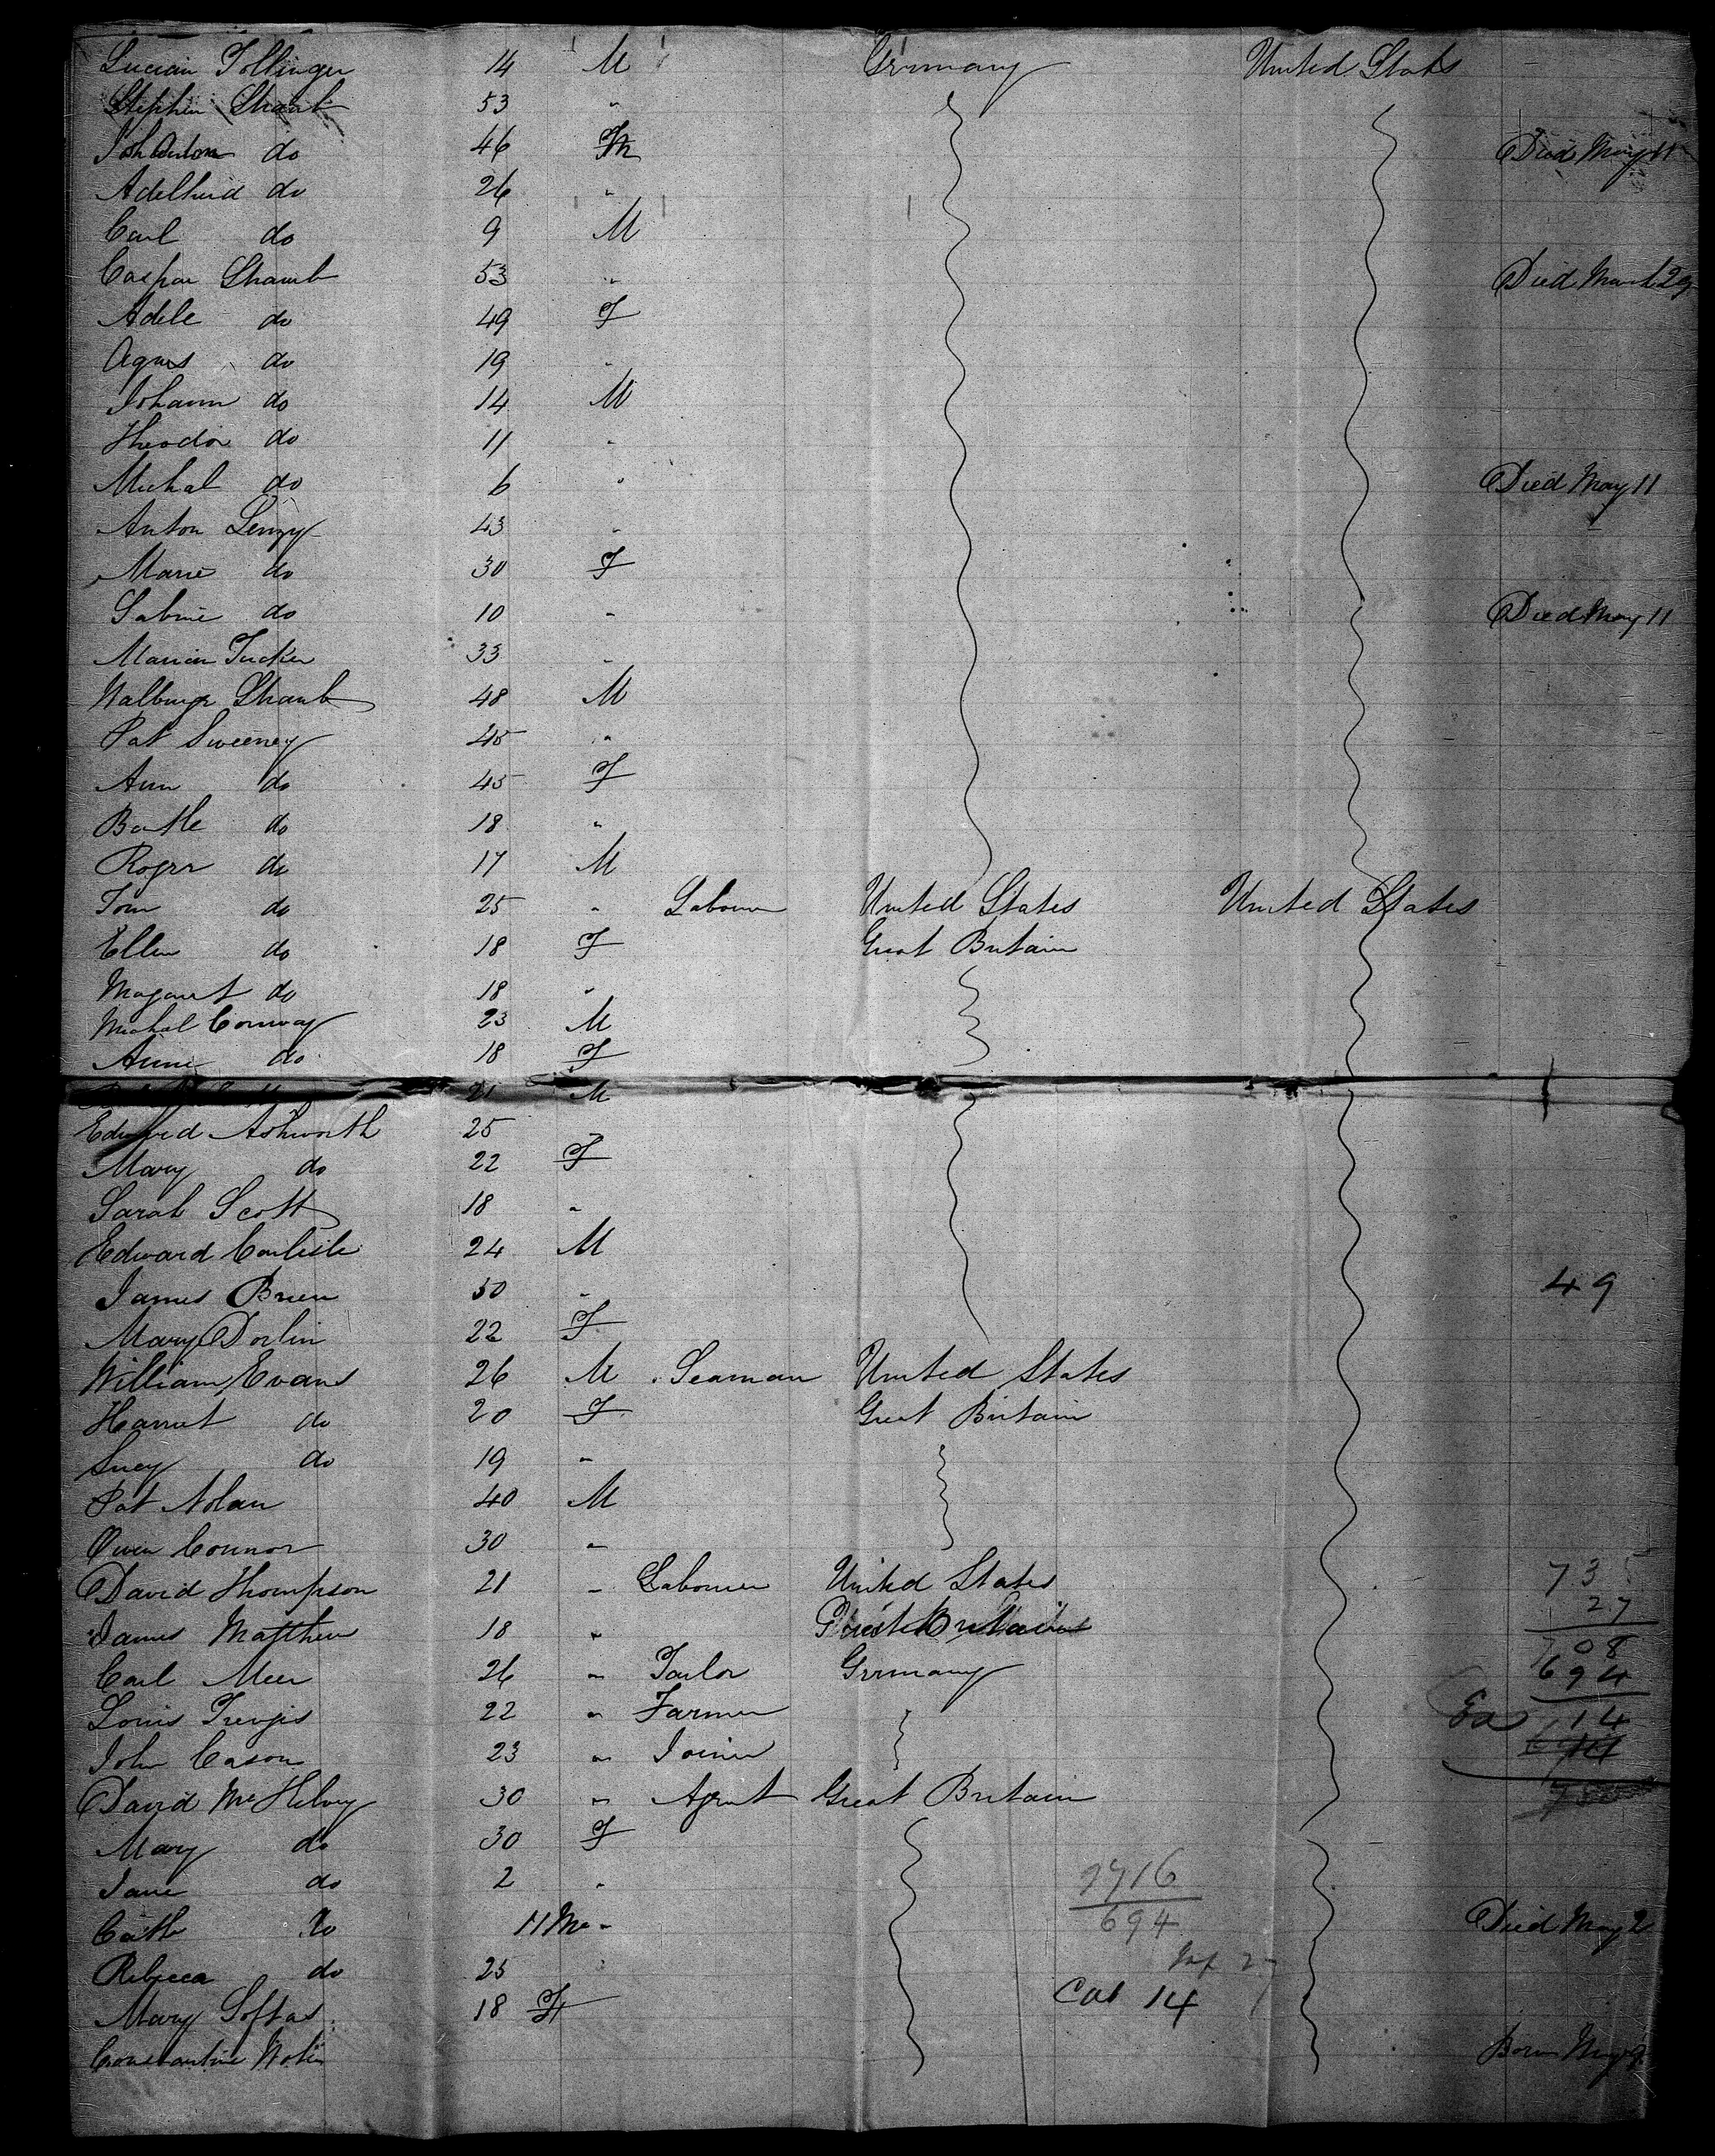 Lucian Tollinger 14 M Germany United States
Stephen Straub 53 "
Joh Anton do 46 M Died May 11
Adelheid do 26 "
Carl do 9 M
Caspar Straub 53 " Died March 29
Adele do 49 F
Agnes do 19 "
Johann do 14 M
Theodor do 11 "
Michal do 6 " Died May 11
Anton Lenzy 43 "
Marie do 30 F
Sabine do 10 " Died May 11
Marian Tucker 33 "
Walburga Straub 48 M
Pat Sweeney 45 "
Ann do 45 F
Bartle do 18 "
Roger do 17 M
Tom do 25 " Labourer United States United States
Ellen do 18 F Great Britain
Magaret do 18 "
Michal Conway 23 M
Anne do 18 F
21 M
Edward Ashworth 25 "
Mary do 22 F
Sarah Scott 18 "
Edward Carlisle 24 M
James Brien 50 " 49
Mary Dorlin 22 F
William Evans 26 M Seaman United States
Harriet do 20 F Great Britain
Lucy do 19 "
Pat Nolan 40 M
Owen Connor 30 "
David Thompson 21 " Labourer United States 735
27
James Matthew 18 " Great Britain 708
Carl Meer 26 " Tailor Germany 694
Louis 22 " Farmer 14
John Cason 23 " Joiner
David McHelvey 30 " Agent Great Britain
Mary do 30 F
Jane do 2 " 2716
Cath do 11 Mo " 694 Died May 2
Rebecca do 25 " Inf 27
Mary Loftas 18 F Cab 14
Constantine Born May 9